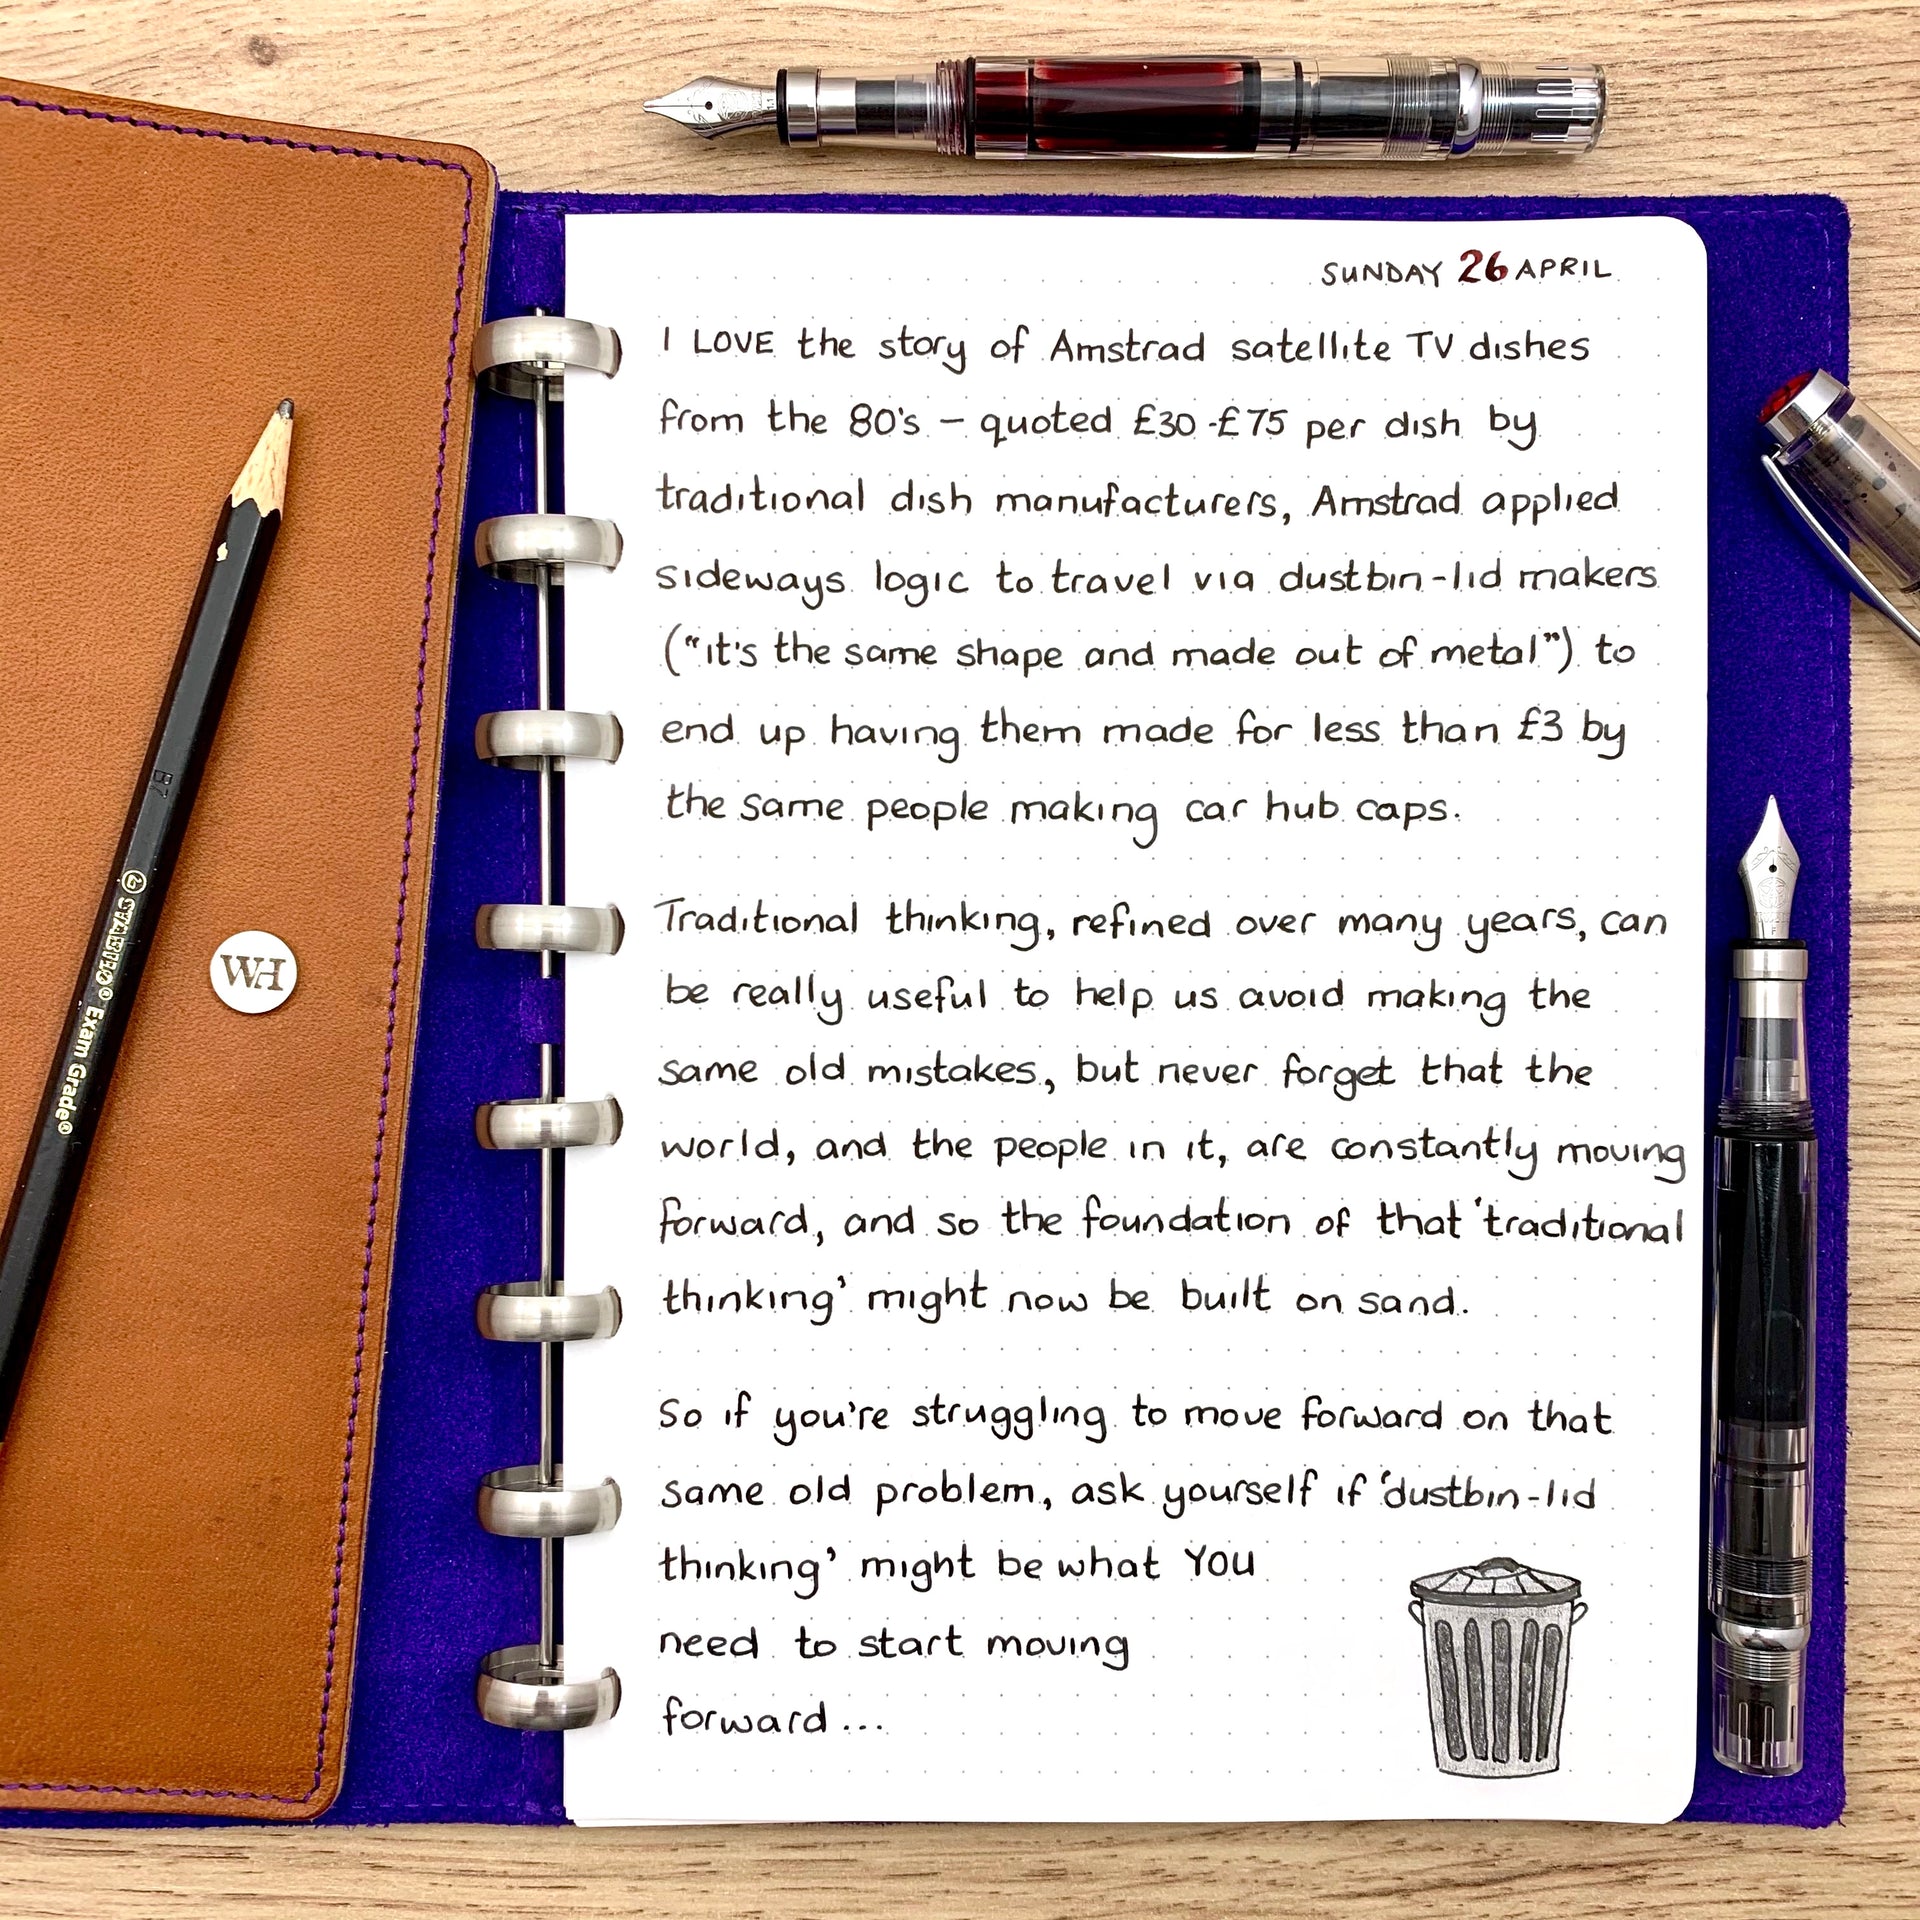 SUNDAY 26 APRIL
I LOVE the story of Amstrad satellite TV dishes
from the 80's – quoted £30-£75 per dish by
traditional dish manufacturers, Amstrad applied
sideways logic to travel via dustbin-lid makers
("it's the same shape and made out of metal") to
end up having them made for less than £3 by
the same people making car hub caps.
Traditional thinking, refined over many years, can
be really useful to help us avoid making the
same old mistakes, but never forget that the
world, and the people in it, are constantly moving
forward, and so the foundation of that 'traditional
thinking' might now be built on sand.
So if you're struggling to move forward on that
same old problem, ask yourself if 'dustbin-lid
thinking' might be what YOU
need to start moving
forward...
WH
STABILO® Exam Grade®
B7
1.1
F